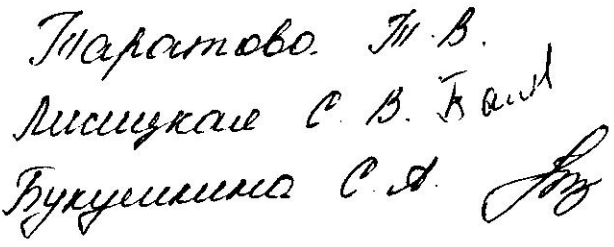 Таратова Т. В.
Лисицкая С. В.
Букушкина С. А.